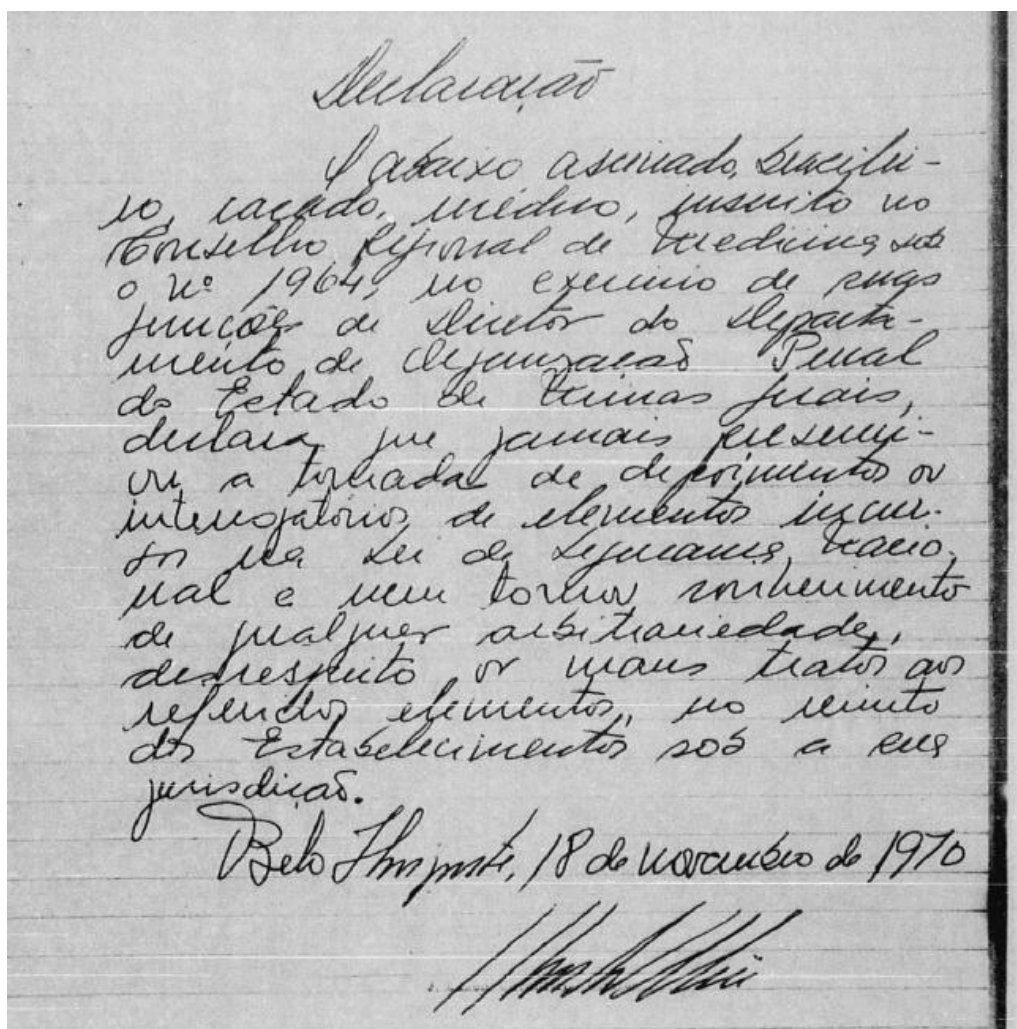 Declaração
O abaixo assinado, brasilei-
ro, casado, médico, inscrito no
Conselho Regional de Medicina sob
o nº 1964, no exercicio de suas
funções de Diretor do Departa-
mento de Organização Penal
do Estado de Minas Gerais,
declara que jamais presenci-
ou a tomadas de depoimentos ou
interrogatórios de elementos incur-
sos na Lei de Segurança Nacio-
nal e nem tomou conhecimento
de qualquer arbitrariedade,
desrespeito ou maus tratos aos
referidos elementos, no recinto
dos Estabelecimentos sob a sua
jurisdição.
Belo Horizonte, 18 de novembro de 1970